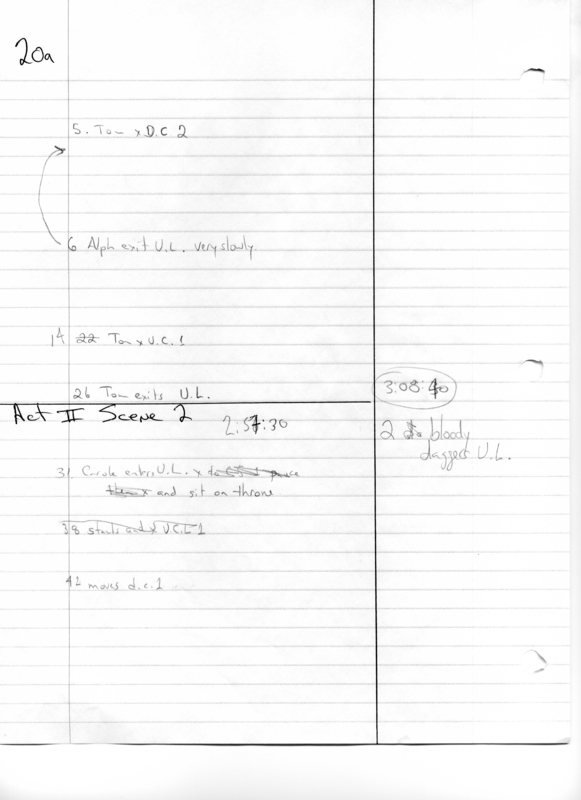 20a
5. Tom x D.C 2
6 Alph exit U.L. very slowly
14 22 Tom x U.C.1
26 Tom exits U.L.
3:08:40
Act II Scene 2
2:57:30
2 bloody
daggers U.L.
31 Carole enters U.L. x to
and sit on throne
38 stands and x U.C.L 1
42 moves d.c.1